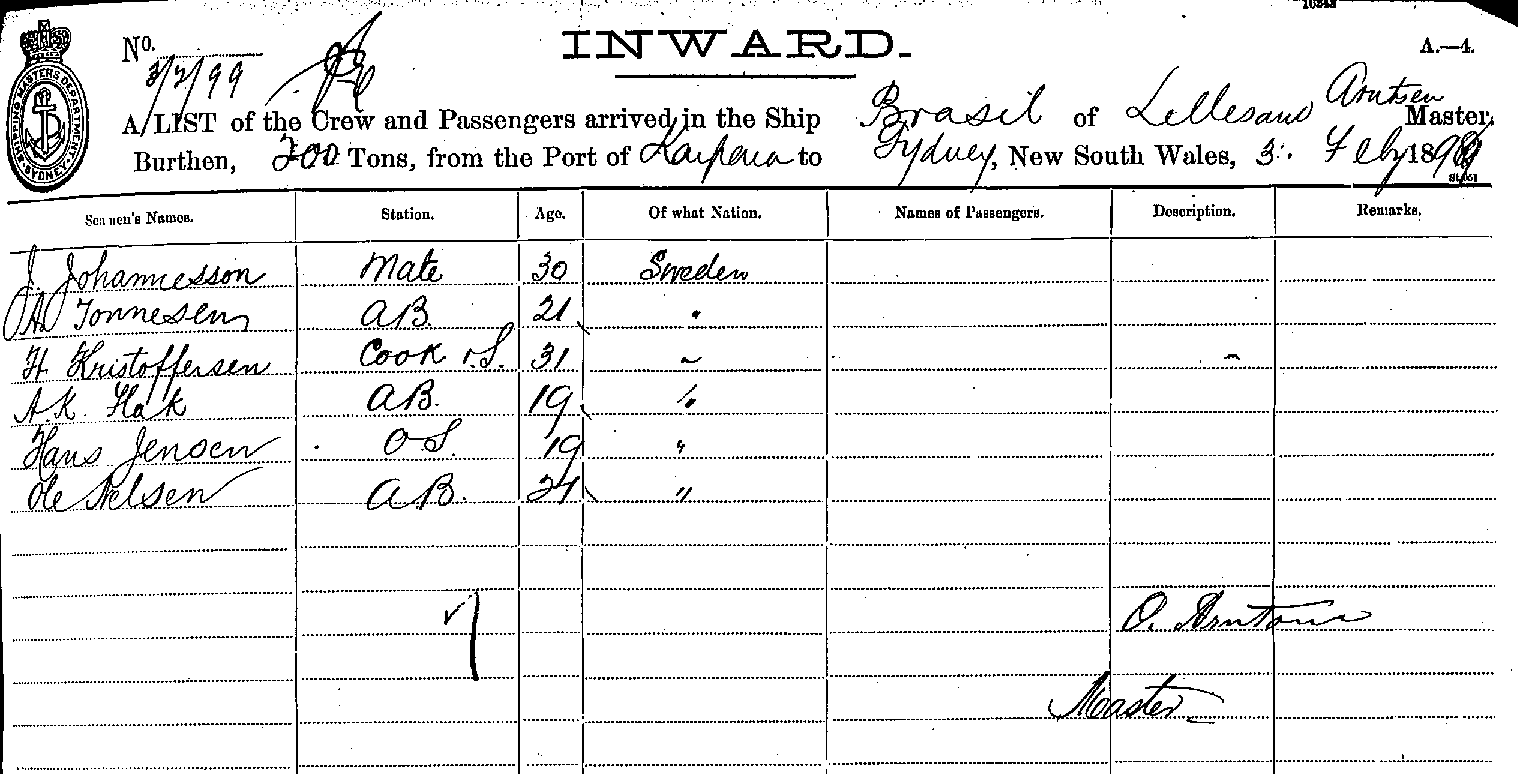 10343
INWARD.
A.—4.
No.
3/2/99
SHIPPING MASTERS DEPARTMENT SYDNEY
A LIST of the Crew and Passengers arrived in the Ship Brasil of Lillesand Arntsen Master,
Burthen, 700 Tons, from the Port of Kaipara to Sydney, New South Wales, 3. Feby 1899
Seamen's Names. Station. Age. Of what Nation. Names of Passengers. Description. Remarks.
J. Johannesson Mate 30 Sweden
A. Tonnesen A.B. 21 "
H. Kristoffersen Cook & S. 31 "
A. K. Hak A.B. 19 "
Hans Jensen O.S. 19 "
Ole Nelsen A.B. 24 "
O. Arntsen
Master